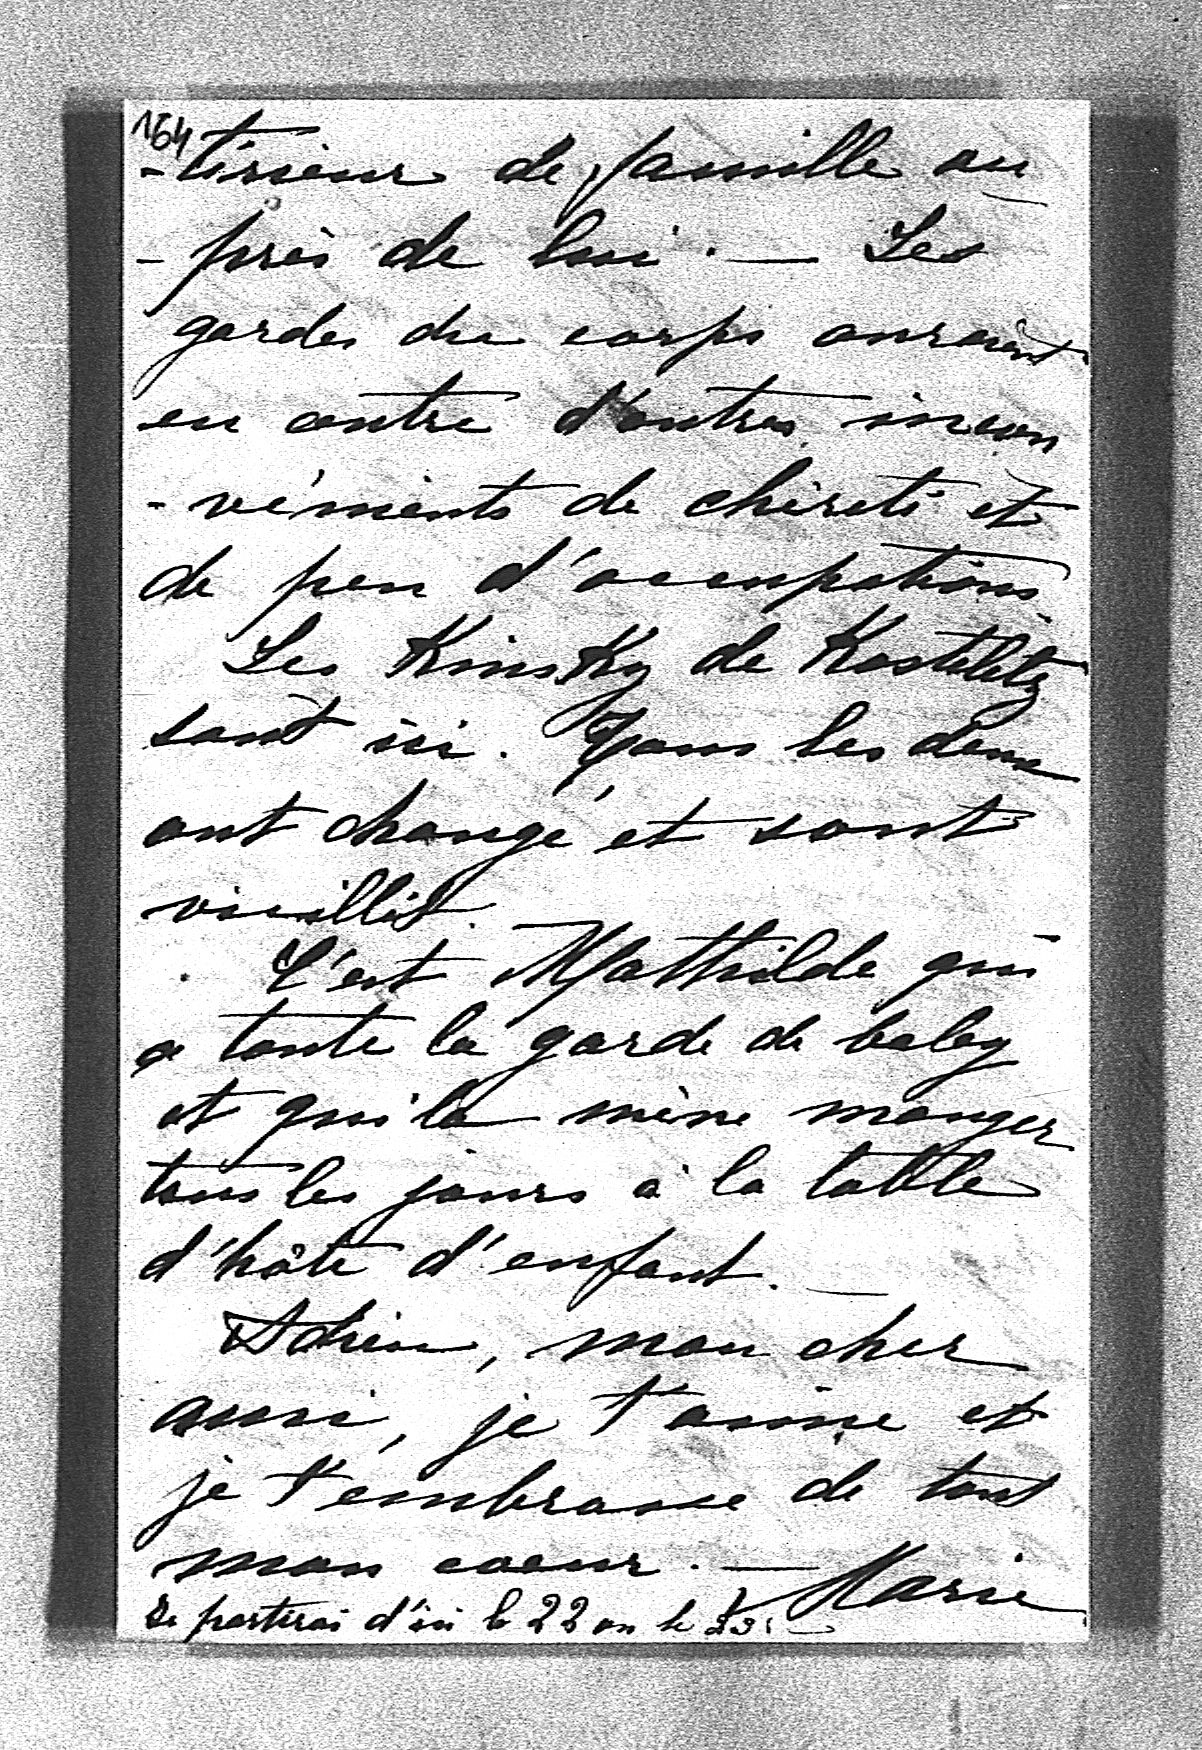 164
-térieur de famille au
- près de lui. — Les
gardes du corps auraient
en outre d'autres incon
- vénients de chèreté et
de peu d'occupations.
Les Kinsky de Kosteletz
sont ici. Tous les deux
ont changé et sont
vieillit.
C'est Mathilde qui
a toute la garde de baby
et qui la mène manger
tous les jours à la table
d'hôte d'enfant. —
Adieu, mon cher
ami, je t'aime et
je t'embrasse de tout
mon coeur. — Marie
Je partirai d'ici le 22 ou le 23. —